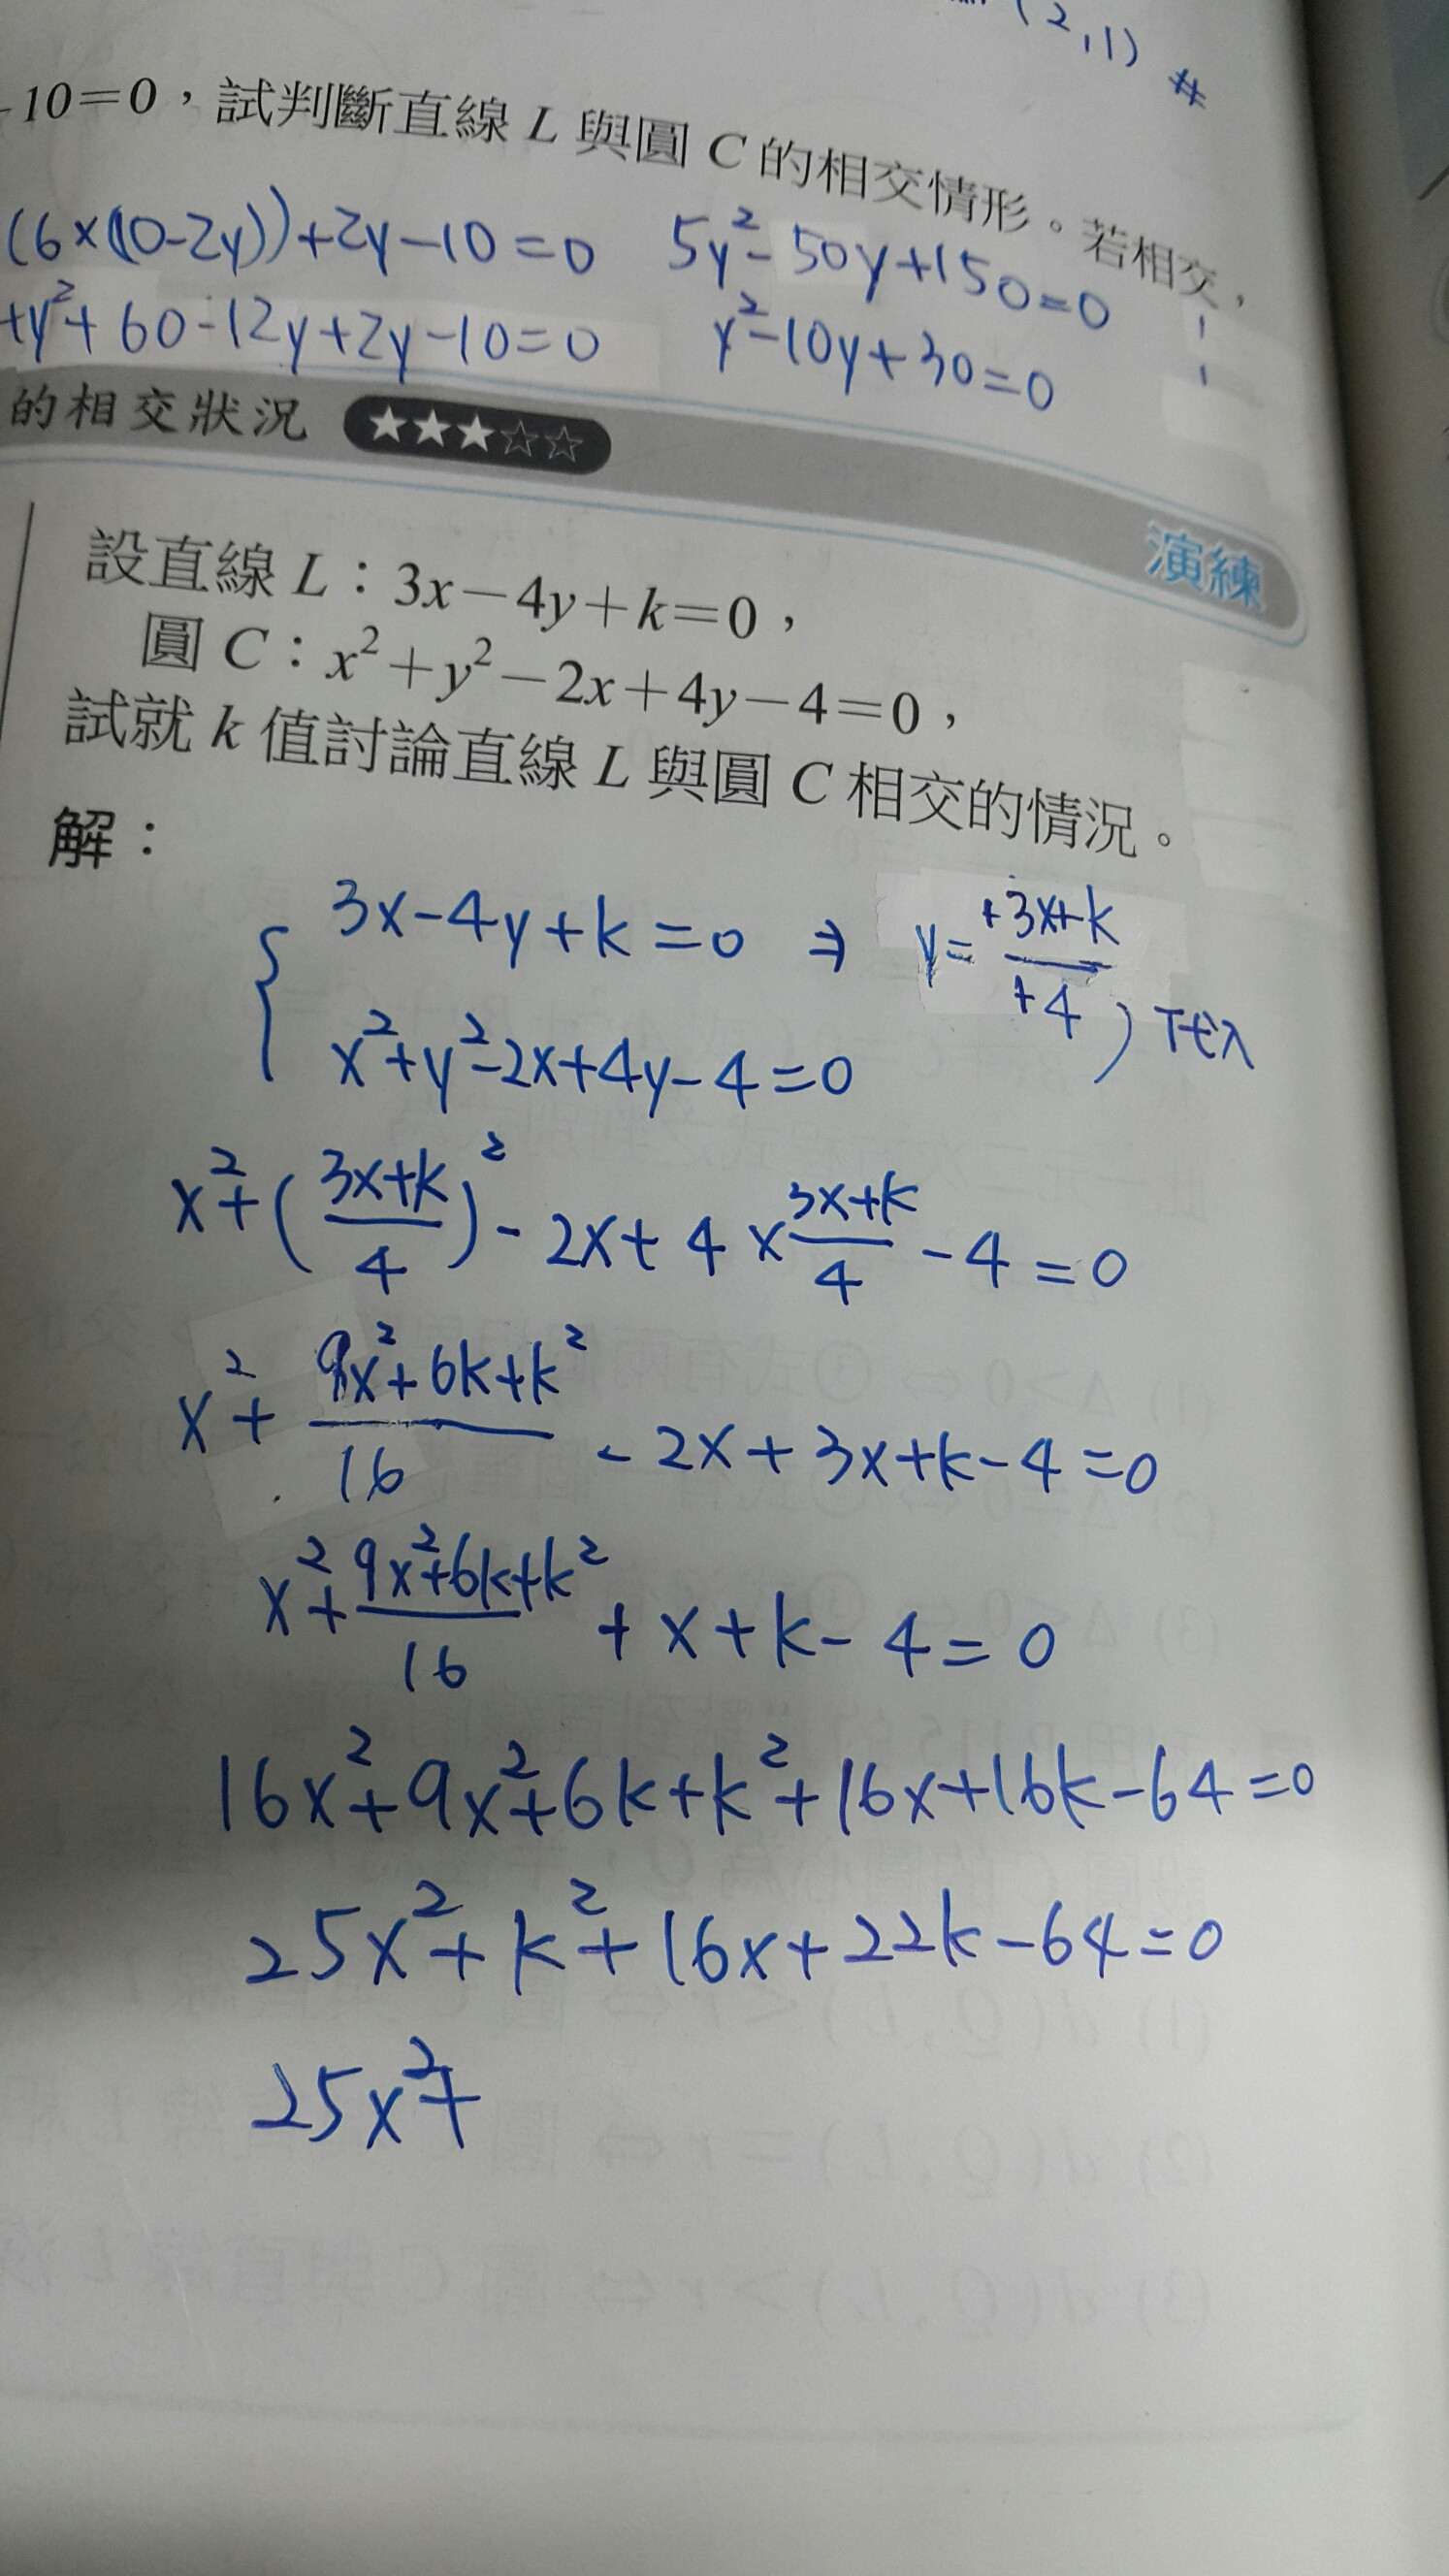 (2,1) #
-10=0，試判斷直線 L 與圓 C 的相交情形。若相交，
(6×(10-2y))+2y-10=0 5y²-50y+150=0
+y²+60-12y+2y-10=0 y²-10y+30=0
的相交狀況 ★★★☆☆
演練
設直線 L：3x-4y+k=0，
圓 C：x²+y²-2x+4y-4=0，
試就 k 值討論直線 L 與圓 C 相交的情況。
解：
3x-4y+k=0 ⇒ y=(+3x+k)/(+4)
x²+y²-2x+4y-4=0 代入
x²+((3x+k)/4)²-2x+4×(3x+k)/4-4=0
x²+(9x²+6k+k²)/16-2x+3x+k-4=0
x²+(9x²+6k+k²)/16+x+k-4=0
16x²+9x²+6k+k²+16x+16k-64=0
25x²+k²+16x+22k-64=0
25x²+